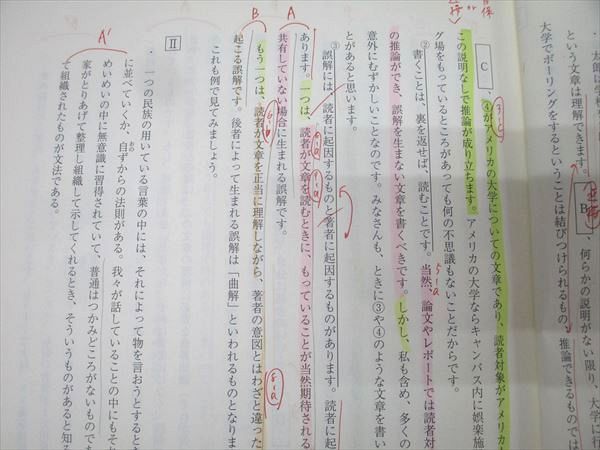 ・太郎は学校
という文章は理解できます。B、何らかの説明がない限り、大学に行
大学でボーリングをするということは結びつけられるもの、推論できるものでは
C、④がアメリカの大学についての文章であり、読者対象がアメリカ
この説明なしで推論が成り立ちます。アメリカの大学ならキャンパス内に娯楽施
グ場をもっているところがあっても何の不思議もないことだからです。
②書くことは、裏を返せば、読むことです。当然、論文やレポートでは読者対
の推論ができ、誤解を生まない文章を書くべきです。しかし、私も含め、多くの
意外にむずかしいことなのです。みなさんも、ときに③や④のような文章を書い
とがあると思います。
③誤解には、読者に起因するものと著者に起因するものがあります。読者に起
あります。一つは、読者が文章を読むときに、もっていることが当然期待される
共有していない場合に生まれる誤解です。
もう一つは、読者が文章を正当に理解しながら、著者の意図とはわざと違った
起こる誤解です。後者によって生まれる誤解は「曲解」といわれるものとなりま
これも例で見てみましょう。
A
B
5-a
8-a
Ⅱ
・一つの民族の用いている言葉の中には、それによって物を言おうとするとき
に並べていくか、自ずからの法則がある。我々が話していることの中にもそれ
おの
めいめいの中に無意識に習得されていて、普通はつかみどころがないものであ
家がとりあげて整理し組織して示してくれるとき、そういうものがあると知る
て組織されたものが文法である。
A'